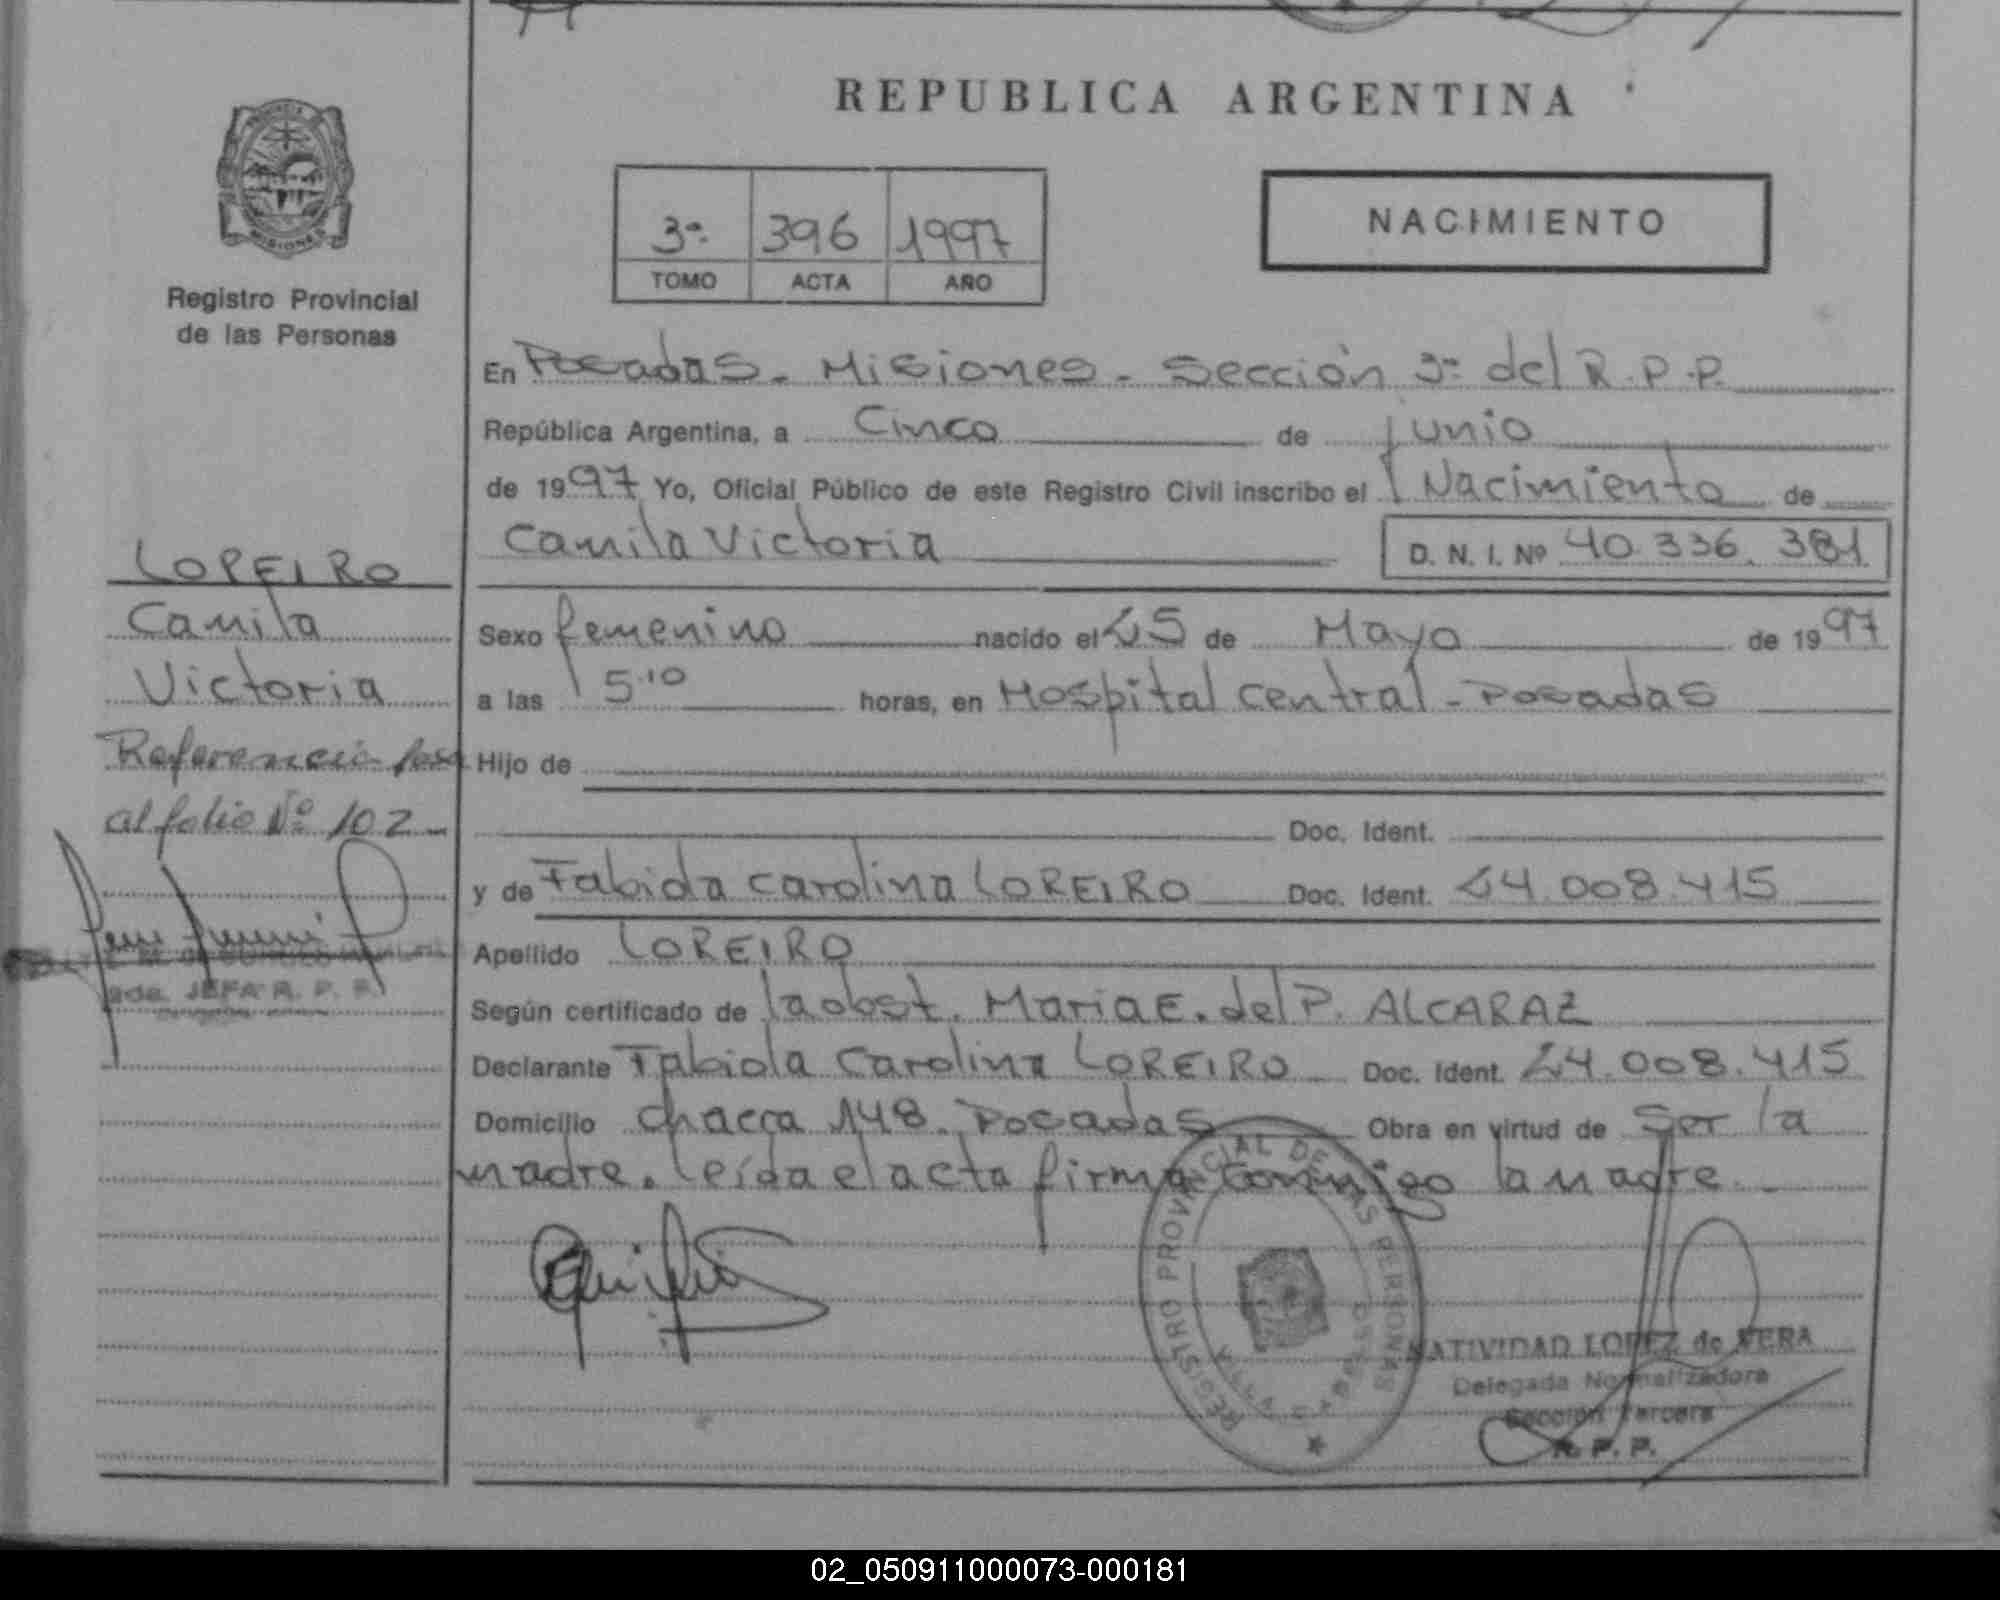 REPUBLICA ARGENTINA
PROVINCIA
MISIONES
Registro Provincial
de las Personas
3º 396 1997
TOMO ACTA AÑO
NACIMIENTO
En Posadas - Misiones - Sección 3ª del R.P.P.
República Argentina, a Cinco de junio
de 1997 Yo, Oficial Público de este Registro Civil inscribo el Nacimiento de
Camila Victoria D. N. I. Nº 40.336.381
LOREIRO
Camila
Victoria
Referencia pasa
al folio Nº 102-
JEFA R. P. P.
Sexo femenino nacido el 25 de Mayo de 1997
a las 5.10 horas, en Hospital Central - Posadas
Hijo de
Doc. Ident.
y de Fabiola Carolina LOREIRO Doc. Ident. 24.008.415
Apellido LOREIRO
Según certificado de la obst. Maria E. del P. ALCARAZ
Declarante Fabiola Carolina LOREIRO Doc. Ident. 24.008.415
Domicilio Chacra 148 Posadas Obra en virtud de Ser la
madre. Leída el acta firma conmigo la madre.
REGISTRO PROVINCIAL DE LAS PERSONAS
NATIVIDAD LOPEZ de VERA
Delegada Normalizadora
Sección Tercera
R. P. P.
02_050911000073-000181